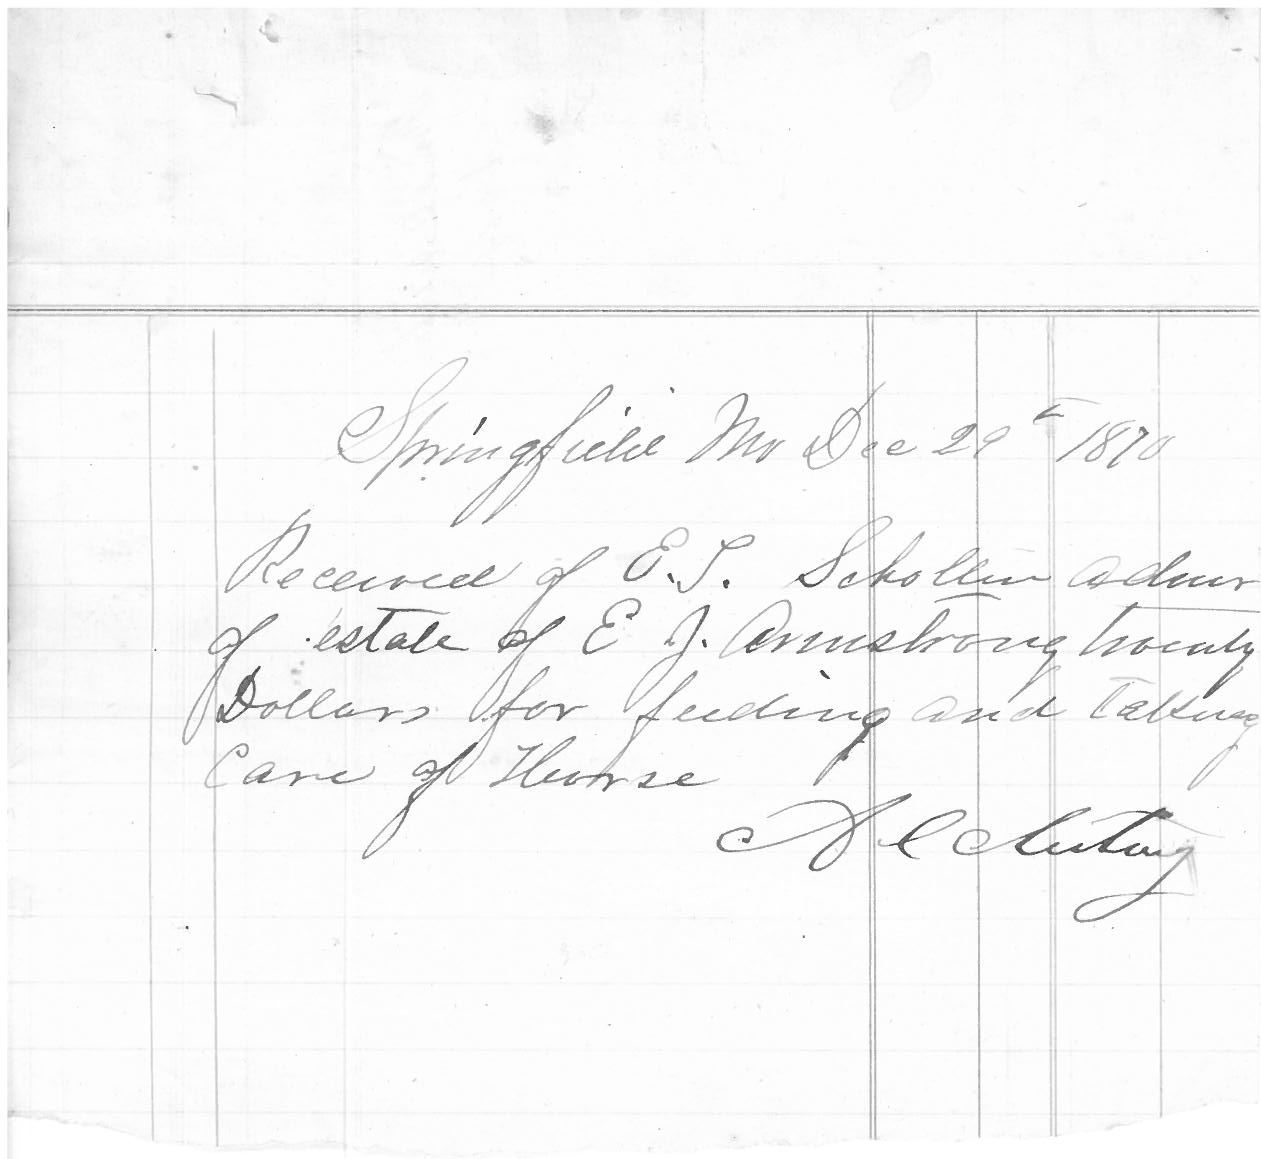 Springfield Mo Dec 29th 1870
Received of E. T. Schollin admr
of estate of E J. Armstrong twenty
Dollars for feeding and taking
Care of Hworse